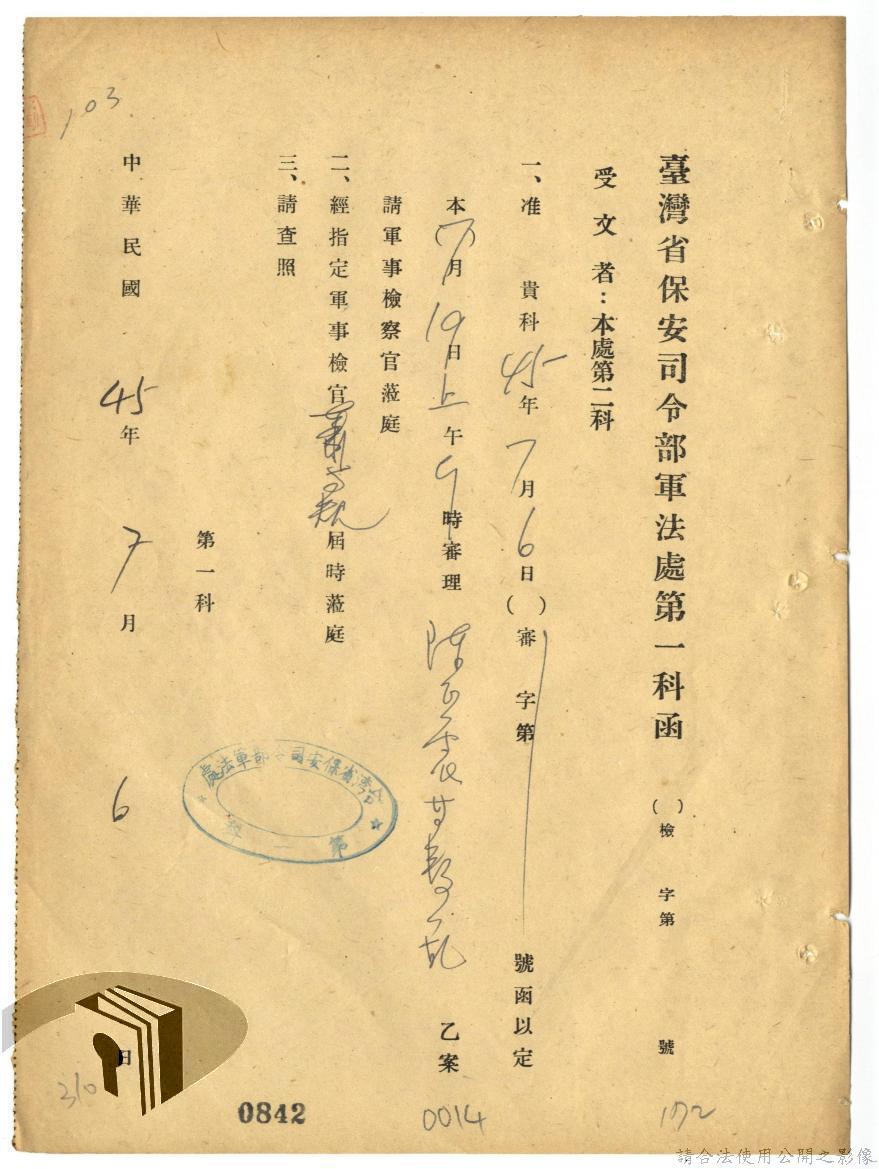 臺灣省保安司令部軍法處第一科函 ( )檢 字第 號
受文者：本處第二科
一、准 貴科45年7月6日( )審 字第 號函以定
本(7)月19日上午9時審理 陳 叛亂 乙案
請軍事檢察官蒞庭
二、經指定軍事檢官 屆時蒞庭
三、請查照
第一科
台灣省保安司令部軍法處
第一科
中華民國 45年 7月 6 日
103
310
0842
0014
172
請合法使用公開之影像